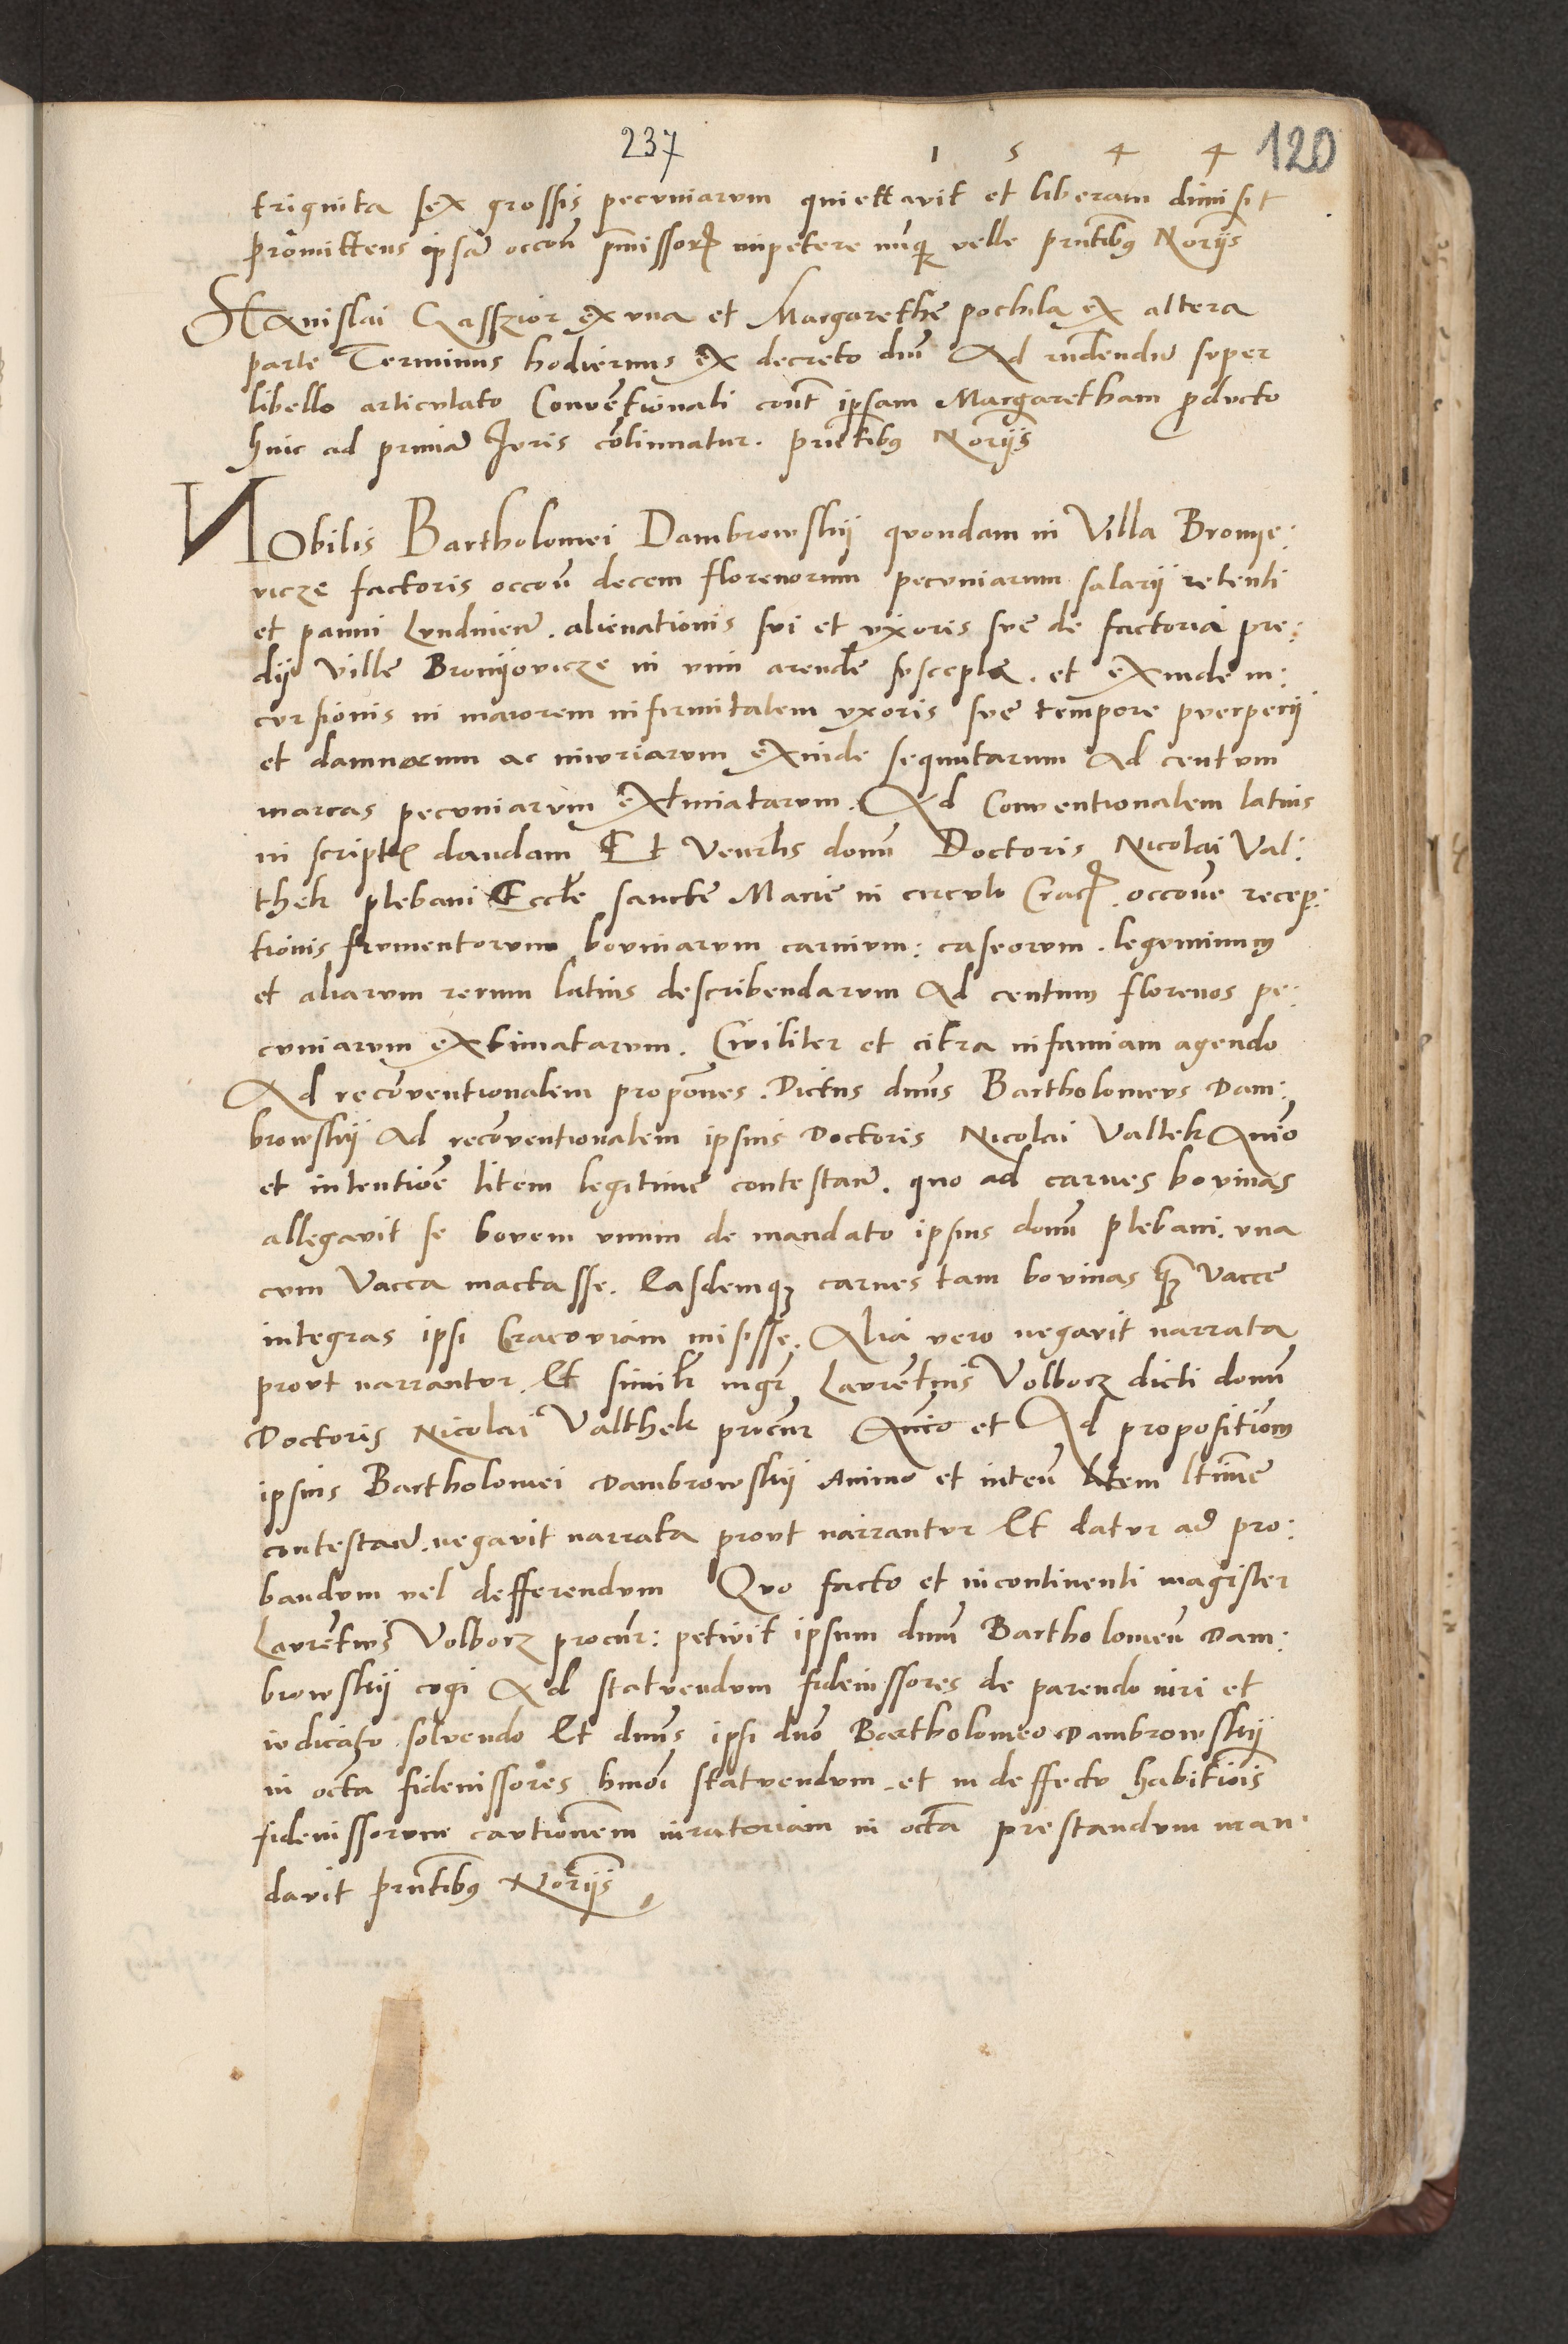 237
1 5 4 4
120
triginta sex grossis pecuniarum quiettavit et liberam dimisit
promittens ipsã occoñ pmissorꝝ impetere nũqꝫ velle pñtibꝫ Noriis
Stanislai Gasszior ex vna et Margarethe pochila ex altera
parte Terminus hodiernus ex decreto dñi Ad rñdendũ super
libello articulato Conventionali cont ipsam Margaretham ꝓducto
hinc ad primã Juris cõtinuatur. pñtibꝫ Noriis
NObilis Bartholomei Dambrowskij quondam in Villa Bronye:
vicze factoris occoñ decem florenorum pecuniarum salarij retenti
et panni Lundinen̄. alienationis sui et vxoris sue de factoria pre:
dij ville Bronijovicze in vim arende suscepte. et exinde in:
cursionis in maiorem infirmitatem vxoris sue tempore puerperij
et damnorum ac iniuriarum exinde sequutarum Ad centum
marcas pecuniarum extimatarum. Ad Conventionalem latius
in scriptꝭ dandam Et Venꝛlis domñ Doctoris Nicolai Val:
thek plebani Eccłe sancte Marie in circulo Cracꝭ. occone recep:
tionis frumentorum bovinarum carnium: caseorum. leguminum
et aliarum rerum latius describendarum Ad centum florenos pe:
cuniarum extimatarum. Civiliter et citra infamiam agendo
Ad recõventionalem propoñes. Dictus dnus Bartholomeus Dam:
browskij Ad recõventionalem ipsius Doctoris Nicolai Valtek Anio
et intentiõe litem legitime contestañ. quo ad carnes bovinas
allegavit se bovem vnum de mandato ipsius domñ plebani. vna
cum Vacca mactasse. Easdemqꝫ carnes tam bovinas qꝫ vacce
integras ipsi Cracoviam misisse. Alia vero negavit narrata
prout narrantur. Et similr mgr Laurẽtius Volborz dicti domñ
Doctoris Nicolai Valthek procur Anio et Ad propositiõm
ipsius Bartholomei Dambrowskij Animo et inteñ litem ltime
contestañ. negavit narrata prout narrantur Et datur ad pro:
bandum vel defferendum Quo facto et incontinenti magister
Laurẽtius Volborz procur: petivit ipsum dnũ Bartholomeũ Dam:
browskij cogi Ad statuendum fideiussores de parendo iuri et
iudicato solvendo Et dnus ipsi dno Bartholomeo Dambrowskij
in octa fideiussores hmoi statuendum. et in deffectu habitiõis
fideiussorum cautionem iuratoriam in octa prestandum man:
davit pñtibꝫ Noriis